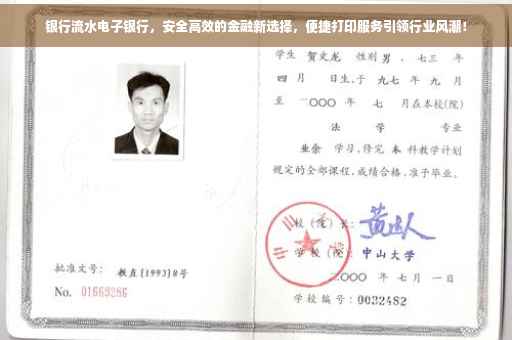 银行流水电子银行，安全高效的金融新选择，便捷打印服务引领行业风潮！
学生 贺文龙 性别 男 ，七三 年
四 月 日生，于 九七 年 九 月
至 二〇〇〇 年 七 月在本校(院)
法 学 专业
业余 学习，修完 本 科教学计划
规定的全部课程，成绩合格，准予毕业。
校（院）长：
学 校（院）：中山大学
二〇〇〇 年 七 月 一 日
学校编号：0032482
批准文号： 教直[1993]8号
No. 01669286